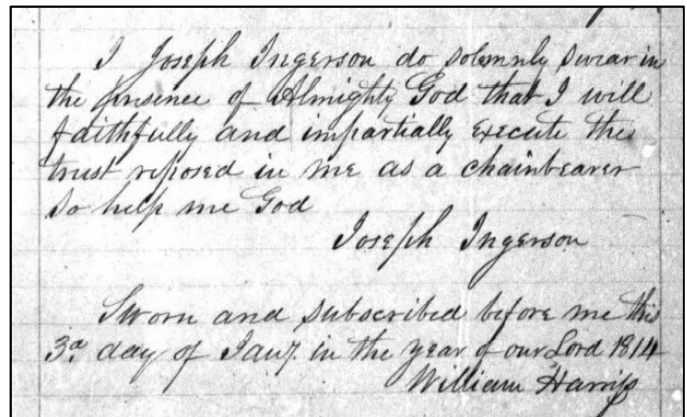 I Joseph Ingerson do solemnly swear in
the presence of Almighty God that I will
faithfully and impartially execute the
trust reposed in me as a chainbearer
So help me God
Joseph Ingerson
Sworn and subscribed before me this
3d day of Jany. in the year of our Lord 1814
William Harriss